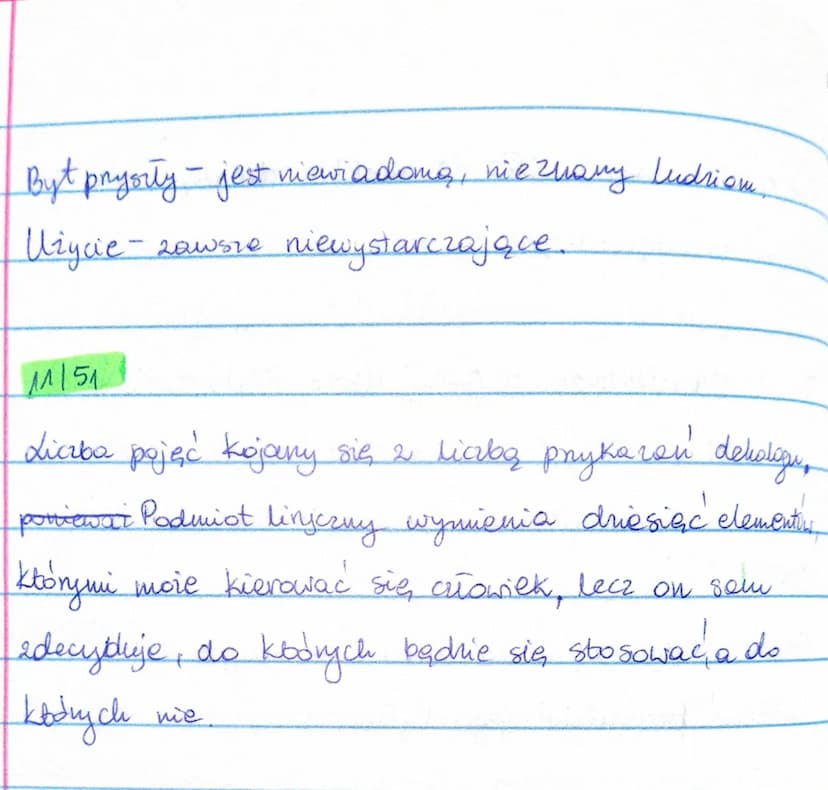 Byt przyszły – jest niewiadomą, nieznany ludziom.
Użycie – zawsze niewystarczające.
11/51
Liczba pojęć kojarzy się z liczbą przykazań dekalogu,
ponieważ Podmiot liryczny wymienia dziesięć elementów,
którymi może kierować się człowiek, lecz on sam
zdecyduje, do których będzie się stosować, a do
których nie.